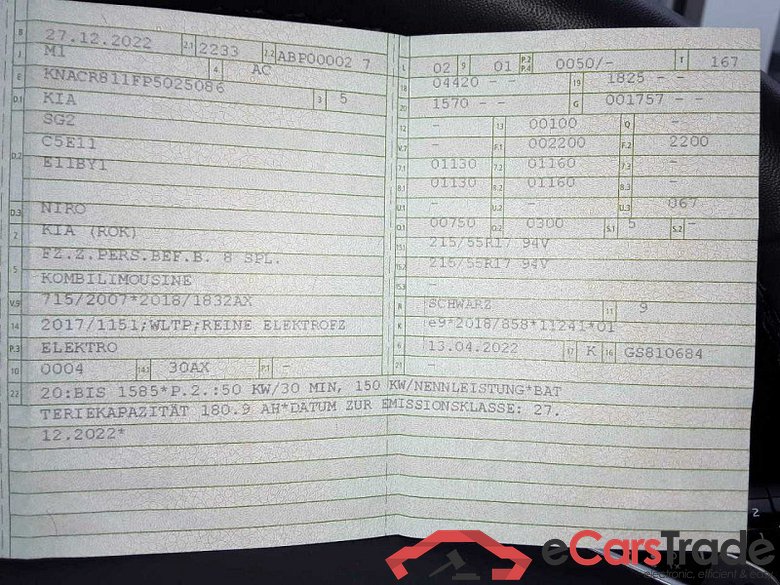 B 27.12.2022 2.1 2233 2.2 ABP00002 7
J M1 4 AC
E KNACR811FP5025086
D.1 KIA 3 5
SG2
D.2 C5E11
E11BY1
D.3 NIRO
2 KIA (ROK)
5 FZ.Z.PERS.BEF.B. 8 SPL.
KOMBILIMOUSINE
V.9 715/2007*2018/1832AX
14 2017/1151;WLTP;REINE ELEKTROFZ
P.3 ELEKTRO
10 0004 14.1 30AX P.1 -
L 02 9 01 P.2 P.4 0050/- T 167
18 04420 - - 19 1825 - -
20 1570 - - G 001757 - -
12 - 13 00100 Q -
V.7 - F.1 002200 F.2 2200
7.1 01130 7.2 01160 7.3 -
8.1 01130 8.2 01160 8.3 -
U.1 - U.2 - U.3 067
O.1 00750 O.2 0300 S.1 5 S.2 -
15.1 215/55R17 94V
15.2 215/55R17 94V
15.3 -
R SCHWARZ 11 9
K e9*2018/858*11241*01
6 13.04.2022 17 K 16 GS810684
22 20:BIS 1585*P.2.:50 KW/30 MIN, 150 KW/NENNLEISTUNG*BAT
TERIEKAPAZITÄT 180.9 AH*DATUM ZUR EMISSIONSKLASSE: 27.
12.2022*
2
eCarsTrade
electronic, efficient &